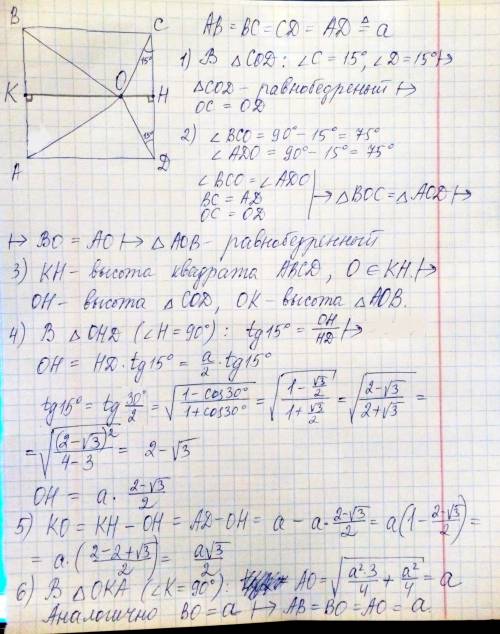 B
C
15°
K
O
H
15°
A
D
AB = BC = CD = AD ≜ a
1) В △COD: ∠C = 15°, ∠D = 15° ↦
△COD - равнобедренный ↦
OC = OD
2) ∠BCO = 90° - 15° = 75°
∠ADO = 90° - 15° = 75°
∠BCO = ∠ADO
BC = AD
OC = OD
↦ △BOC = △AOD ↦
↦ BO = AO ↦ △AOB - равнобедренный
3) KH - высота квадрата ABCD, O ∈ KH. ↦
OH - высота △COD, OK - высота △AOB.
4) В △OHD (∠H = 90°): tg15° = OH/HD ↦
OH = HD · tg15° = a/2 · tg15°
tg15° = tg 30°/2 = √((1 - cos30°)/(1 + cos30°)) = √((1 - √3/2)/(1 + √3/2)) = √((2 - √3)/(2 + √3)) =
= √((2 - √3)²/(4 - 3)) = 2 - √3
OH = a · (2 - √3)/2
5) KO = KH - OH = AD - OH = a - a · (2 - √3)/2 = a(1 - (2 - √3)/2) =
= a · ((2 - 2 + √3)/2) = a√3/2
6) В △OKA (∠K = 90°): AO = √(a²·3/4 + a²/4) = a
Аналогично BO = a ↦ AB = BO = AO = a.